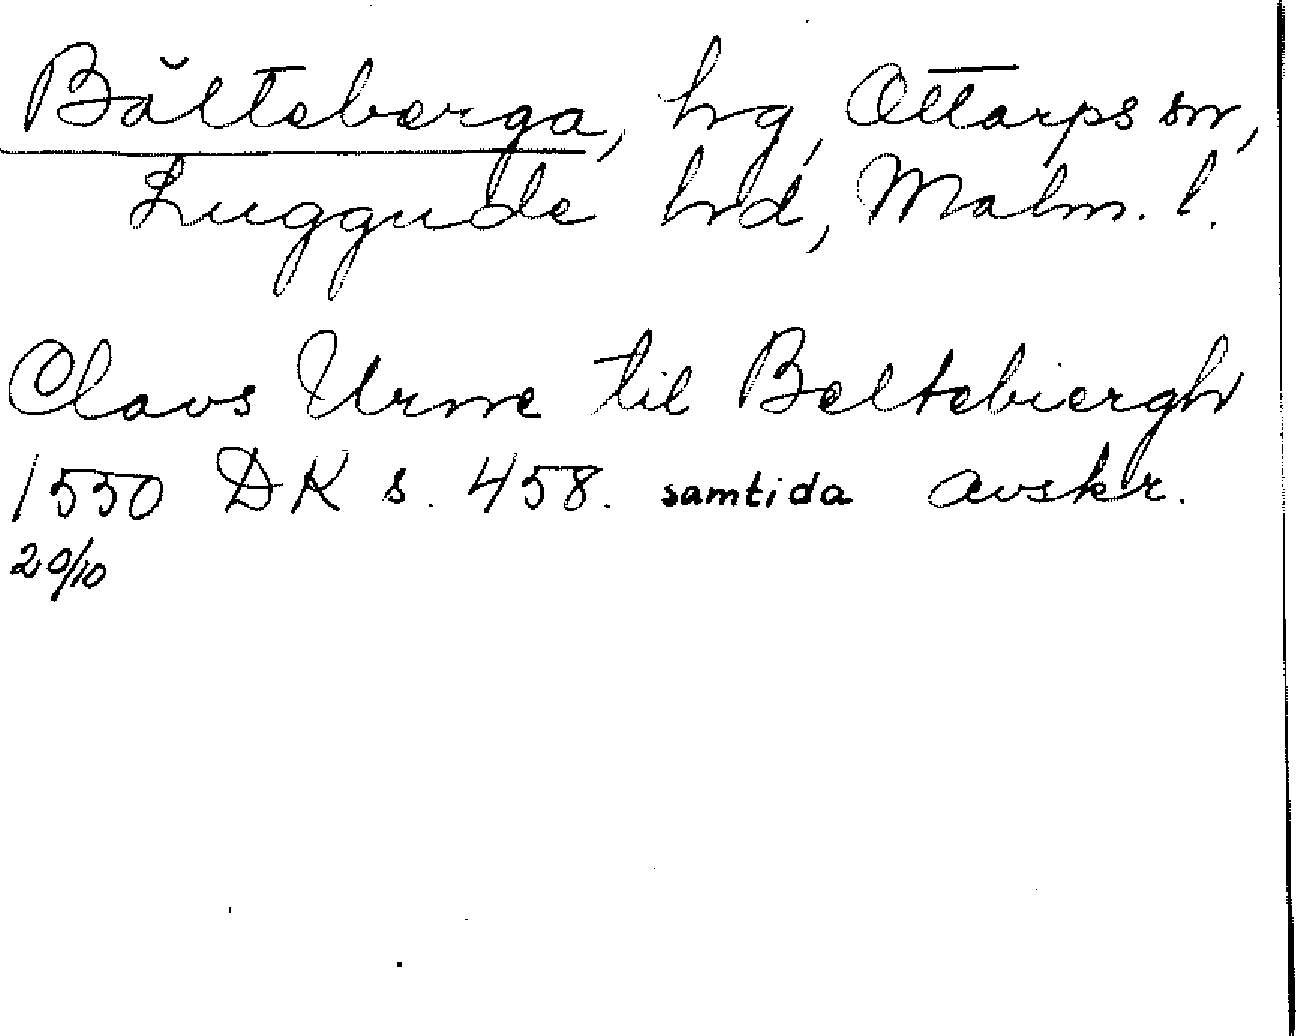 Bälteberga, hg, Ottarps sn,
Luggude hd, Malm. l.
Clavs Urne til Beltebiergh
1550 DK s. 458. samtida avskr.
20/10